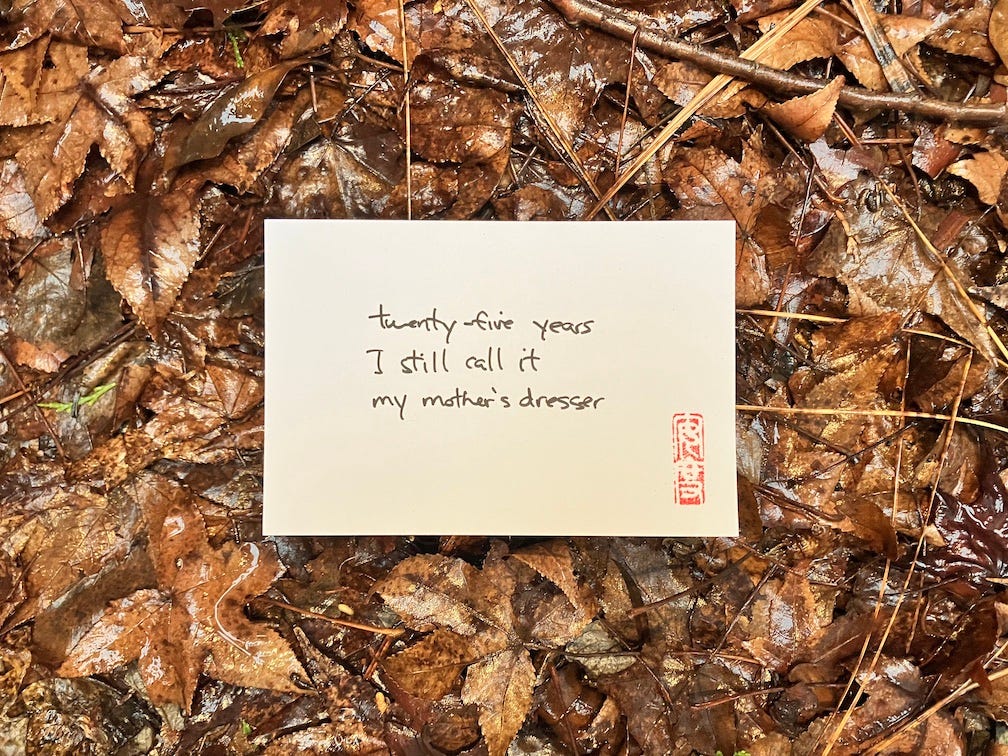 twenty-five years
I still call it
my mother's dresser